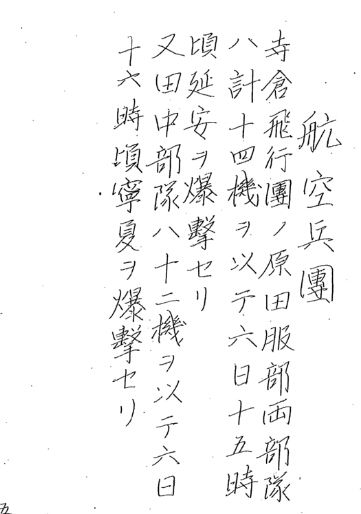 航空兵團
寺倉飛行團ノ原田服部両部隊
ハ計十四機ヲ以テ六日十五時
頃延安ヲ爆擊セリ
又田中部隊ハ十二機ヲ以テ六日
十六時頃寧夏ヲ爆擊セリ
五